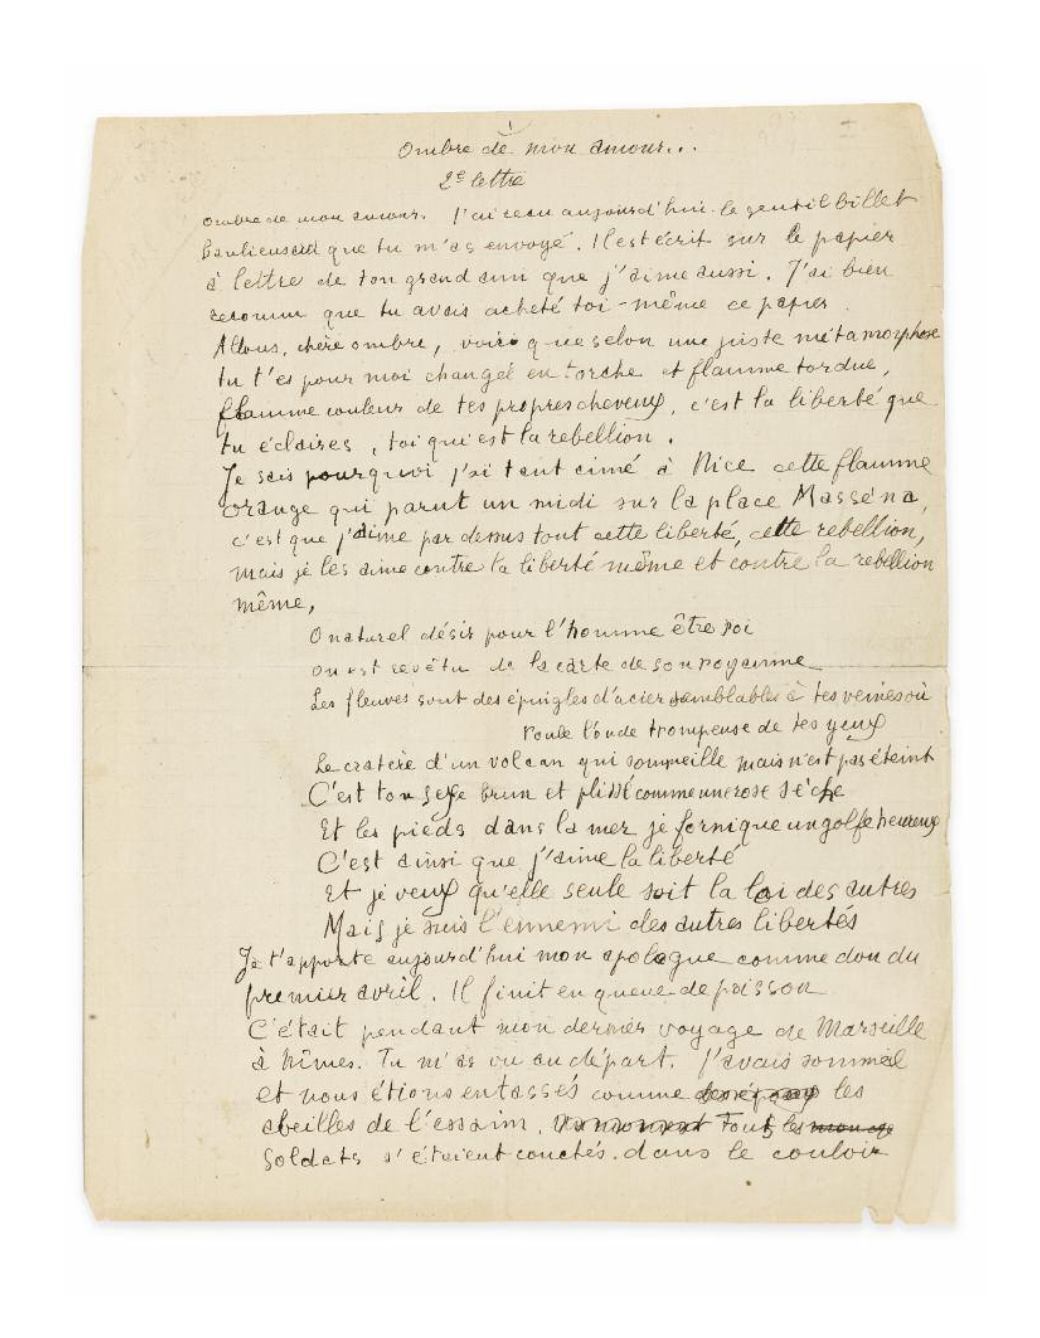 Ombre de mon amour...
2e lettre
Ombre de mon amour. J'ai reçu aujourd'hui le gentil billet
que tu m'as envoyé. Il est écrit sur le papier
à lettre de ton grand ami que j'aime aussi. J'ai bien
reconnu que tu avais acheté toi-même ce papier.
Allons, chère ombre, voici que selon une juste métamorphose
tu t'es pour moi changée en torche et flamme tordue,
flamme couleur de tes propres cheveux, c'est la liberté que
tu éclaires, toi qui est la rebellion.
Je sais pourquoi j'ai tant aimé à Nice cette flamme
orange qui parut un midi sur la place Masséna,
c'est que j'aime par dessus tout cette liberté, cette rebellion,
mais je les aime contre la liberté même et contre la rebellion
même,
O naturel désir pour l'homme être roi
On est revêtu de la carte de son royaume
Les fleuves sont des épingles d'acier semblables à tes veines où
roule l'onde trompeuse de tes yeux
Le cratère d'un volcan qui sommeille mais n'est pas éteint
C'est ton sexe brun et plissé comme une rose sèche
Et les pieds dans la mer je fornique un golfe heureux
C'est ainsi que j'aime la liberté
Et je veux qu'elle seule soit la loi des autres
Mais je suis l'ennemi des autres libertés
Je t'apporte aujourd'hui mon apologue comme don du
premier avril. Il finit en queue de poisson
C'était pendant mon dernier voyage de Marseille
à Nîmes. Tu m'as vu au départ. J'avais sommeil
et nous étions entassés comme les
abeilles de l'essaim. Tous les
soldats s'étaient couchés dans le couloir